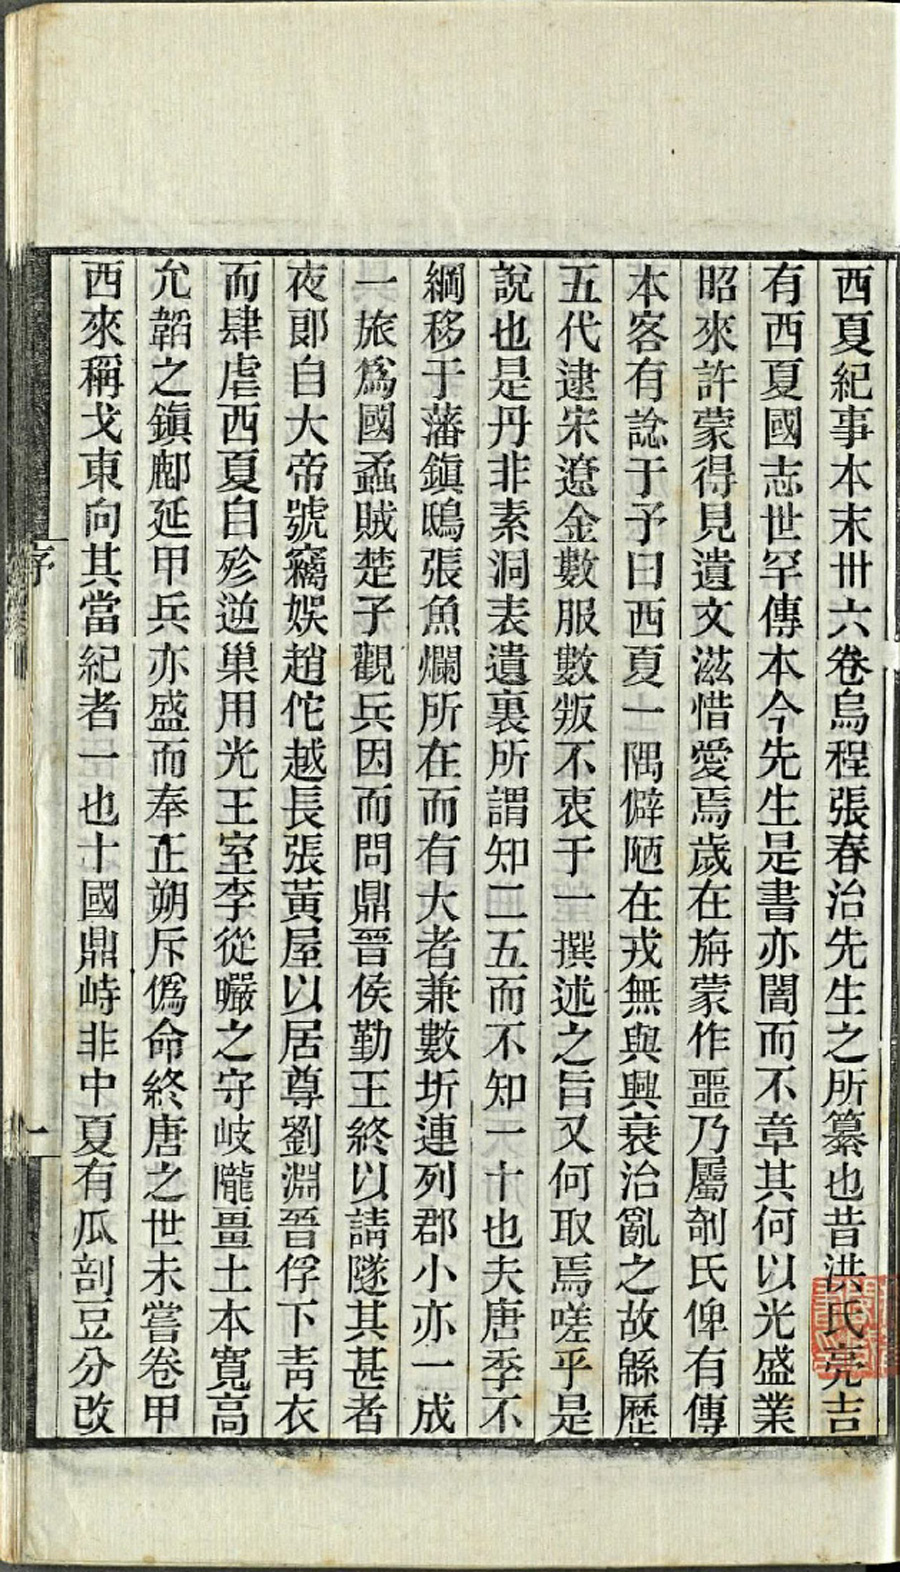 西夏紀事本末卌六卷烏程張春治先生之所纂也昔洪氏亮吉
有西夏國志世罕傳本今先生是書亦闇而不章其何以光盛業
昭來許蒙得見遺文滋惜愛焉歲在旃蒙作噩乃屬剞氏俾有傳
本客有諗于予曰西夏一隅僻陋在戎無與興衰治亂之故緜歷
五代逮宋遼金數服數叛不衷于一撰述之旨又何取焉嗟乎是
說也是丹非素洞表遺裏所謂知二五而不知一十也夫唐季不
綱移于藩鎭鴟張魚爛所在而有大者兼數圻連列郡小亦一成
一旅爲國蟊賊楚子觀兵因而問鼎晉侯勤王終以請隧其甚者
夜郞自大帝號竊娛趙佗越長張黃屋以居尊劉淵晉俘下靑衣
而肆虐西夏自殄逆巢用光王室李從曮之守岐隴畺土本寬高
允韜之鎭鄜延甲兵亦盛而奉正朔斥僞命終唐之世未嘗卷甲
西來稱戈東向其當紀者一也十國鼎峙非中夏有瓜剖豆分改
序
一